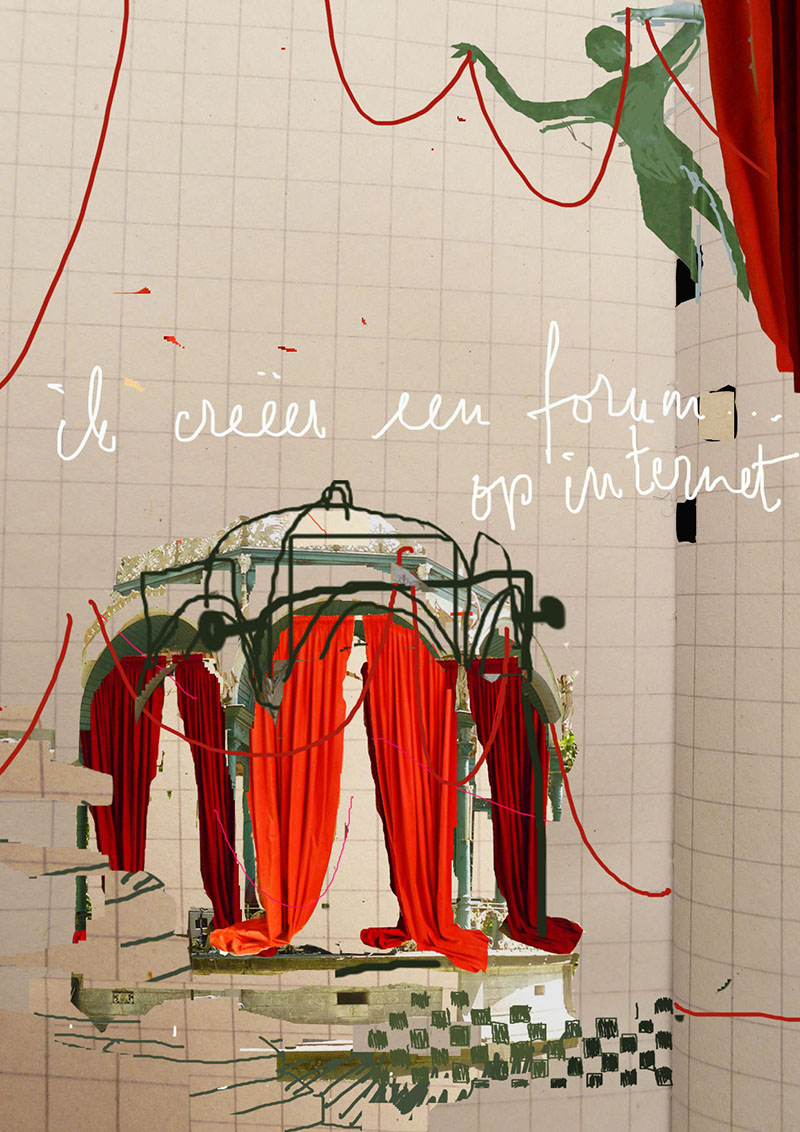 ik creëer een forum...
op internet